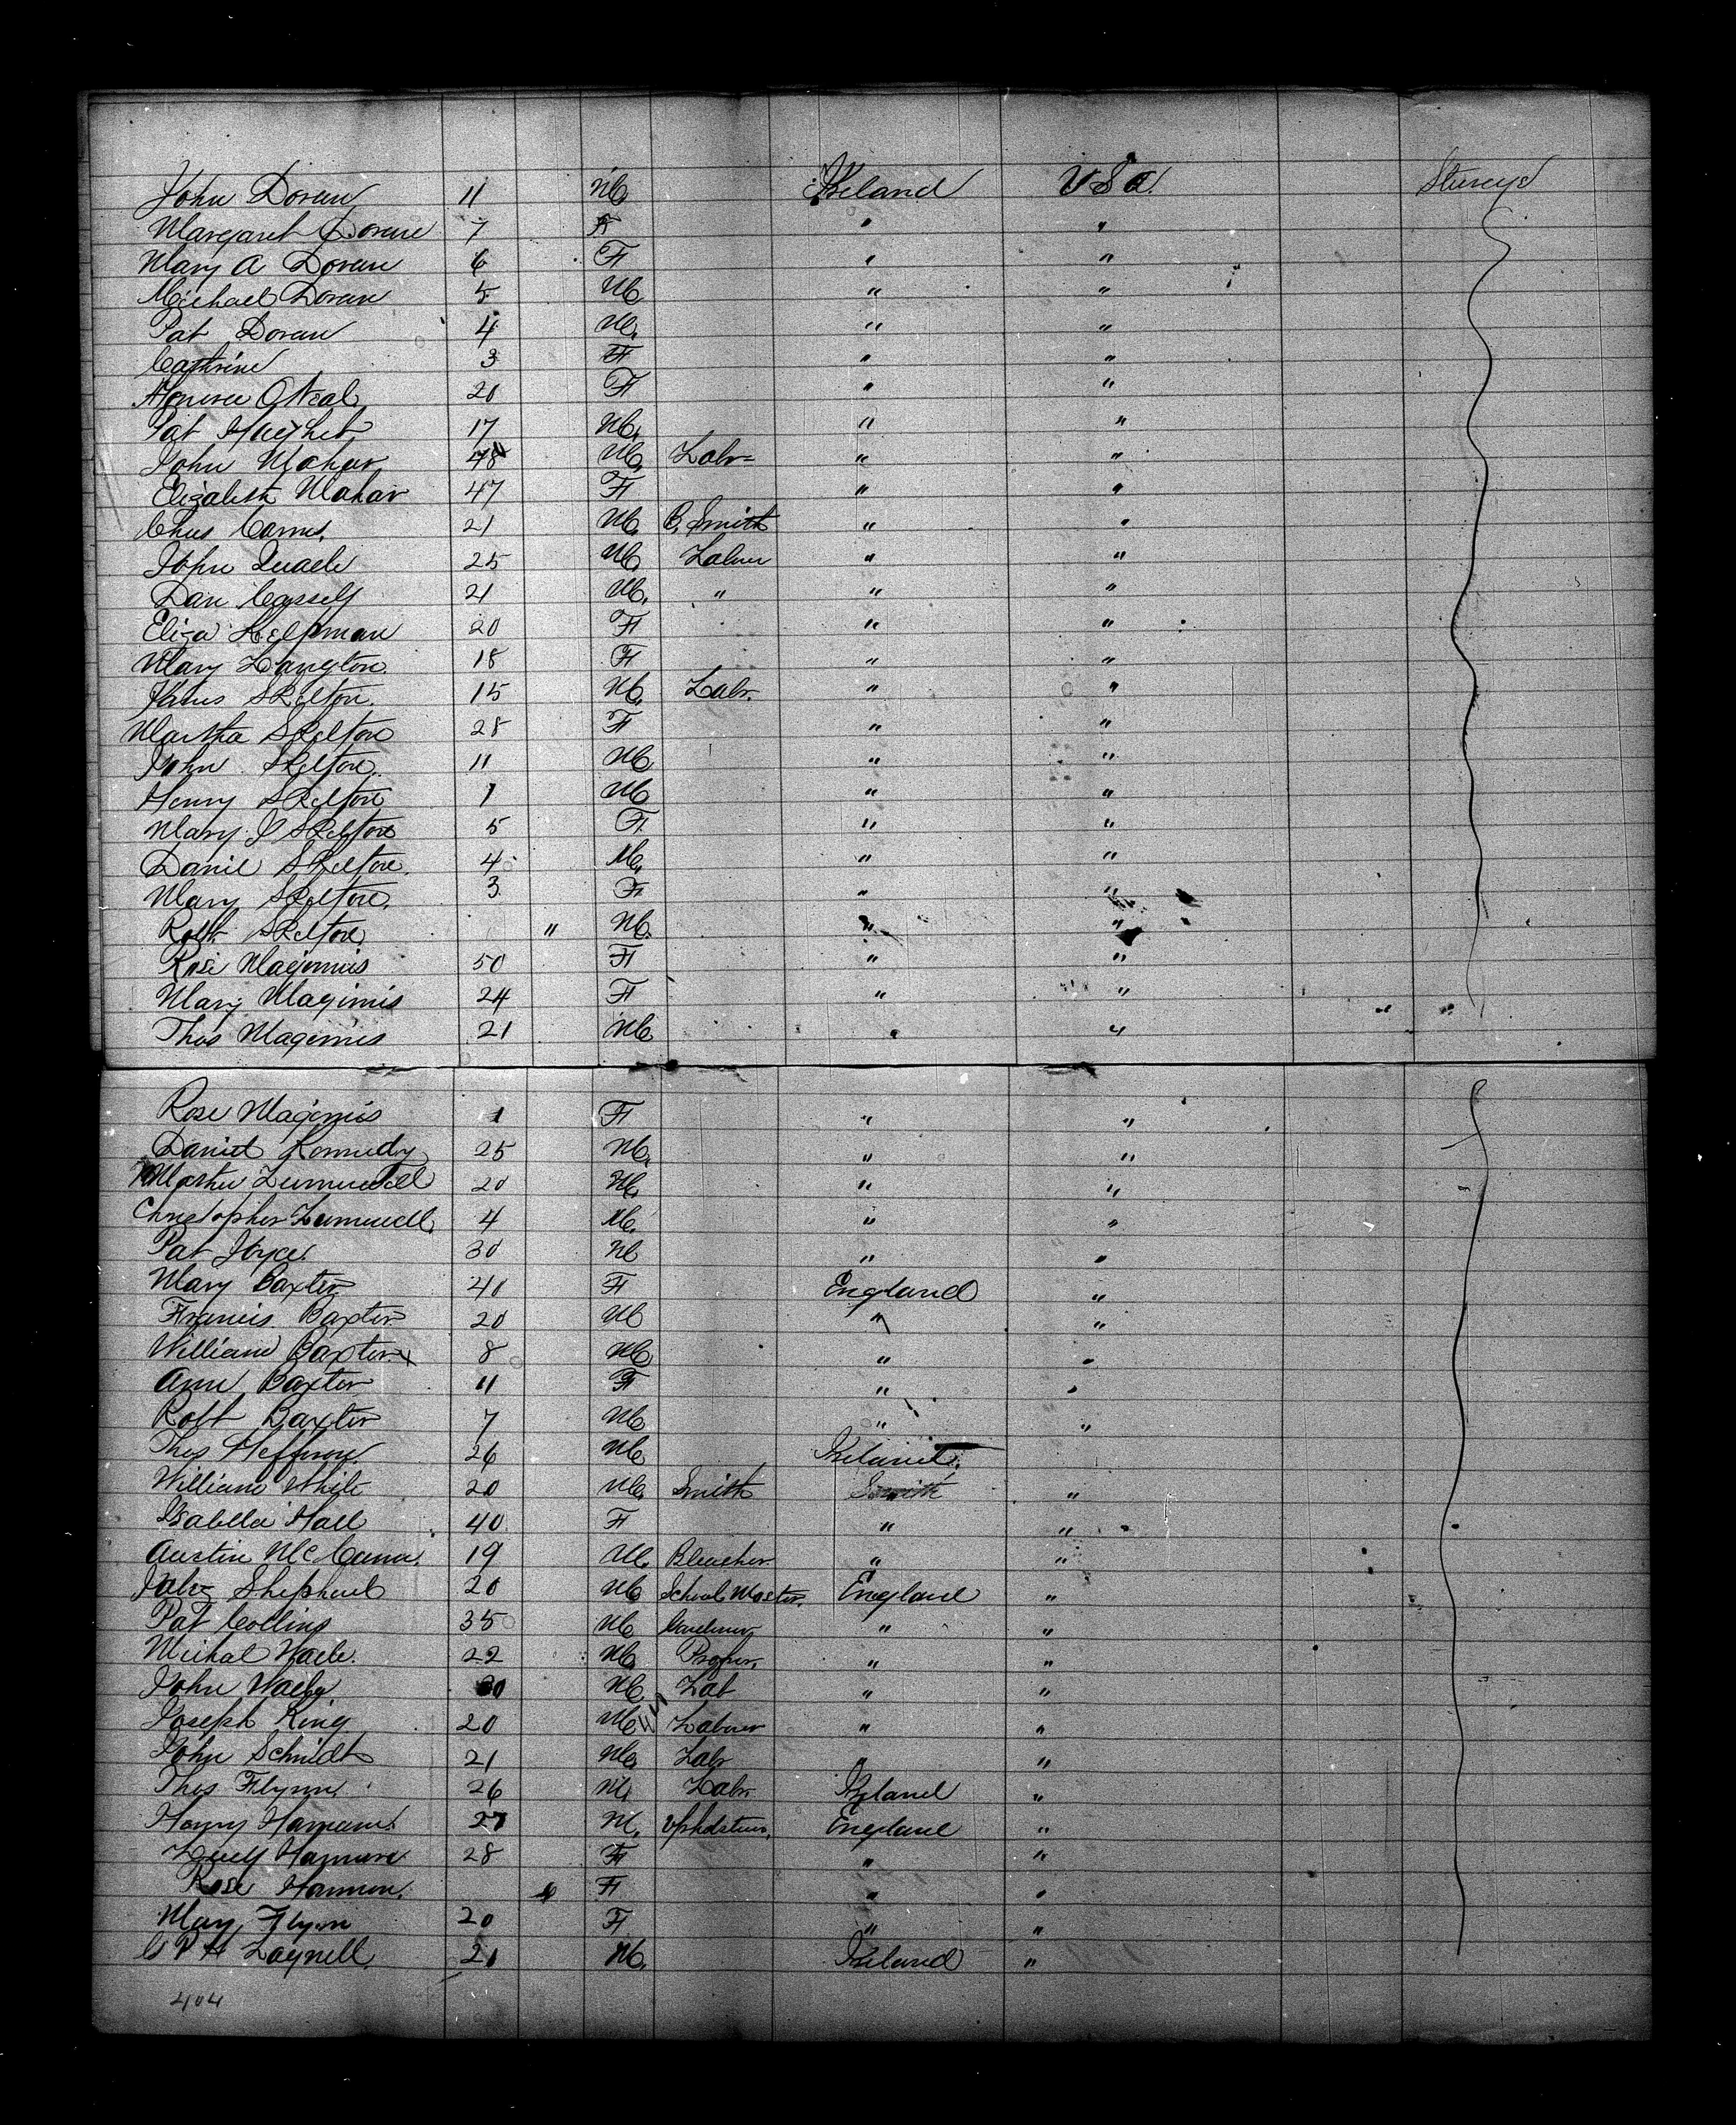 John Doran 11 M Ireland USA Steerage
Margaret Doran 7 F " "
Mary A Doran 6 F " "
Michael Doran 5 M " "
Pat Doran 4 M " "
Cathrine 3 F " "
O Neal 20 F " "
Pat 17 M " "
John Mahar 48 M Labr " "
Elizabeth Mahar 47 F " "
Chas Carns 21 M B. Smith " "
John Quade 25 M Labour " "
Dan Cassely 21 M " " "
Eliza Helpman 20 F " "
Mary Langton 18 F " "
James Skelton 15 M Labr. " "
Martha Skelton 28 F " "
John Skelton 11 M " "
Henry Skelton 7 M " "
Mary J Skelton 5 F " "
Daniel Skelton 4 M " "
Mary Skelton 3 F " "
Robt Skelton " M " "
Rose Maginnis 50 F " "
Mary Maginnis 24 F " "
Thos Maginnis 21 M " "
Rose Maginnis 1 F " "
Daniel Kennedy 25 M " "
20 M " "
Christopher 4 M " "
Pat Joyce 30 M " "
Mary Baxter 40 F England "
Francis Baxter 20 M " "
William Baxter 8 M " "
Ann Baxter 11 F " "
Robt Baxter 7 M " "
Thos Heffron 26 M Ireland
William White 20 M Smith "
Isabella Hall 40 F " "
Austin McCann 19 M Bleacher " "
Shephard 20 M School Master England "
Pat Collins 35 M Gardener " "
Michal Wade 22 M " "
John 30 M Lab " "
Joseph King 20 M Labour " "
John Schmidt 21 M Labr " "
Thos Flynn 26 M Labr Ireland "
Harry 27 M Upholsterer England "
Lucy Hannon 28 F " "
Rose Hannon F " "
Mary Flynn 20 F " "
C P H Laynell 21 M Ireland "
404